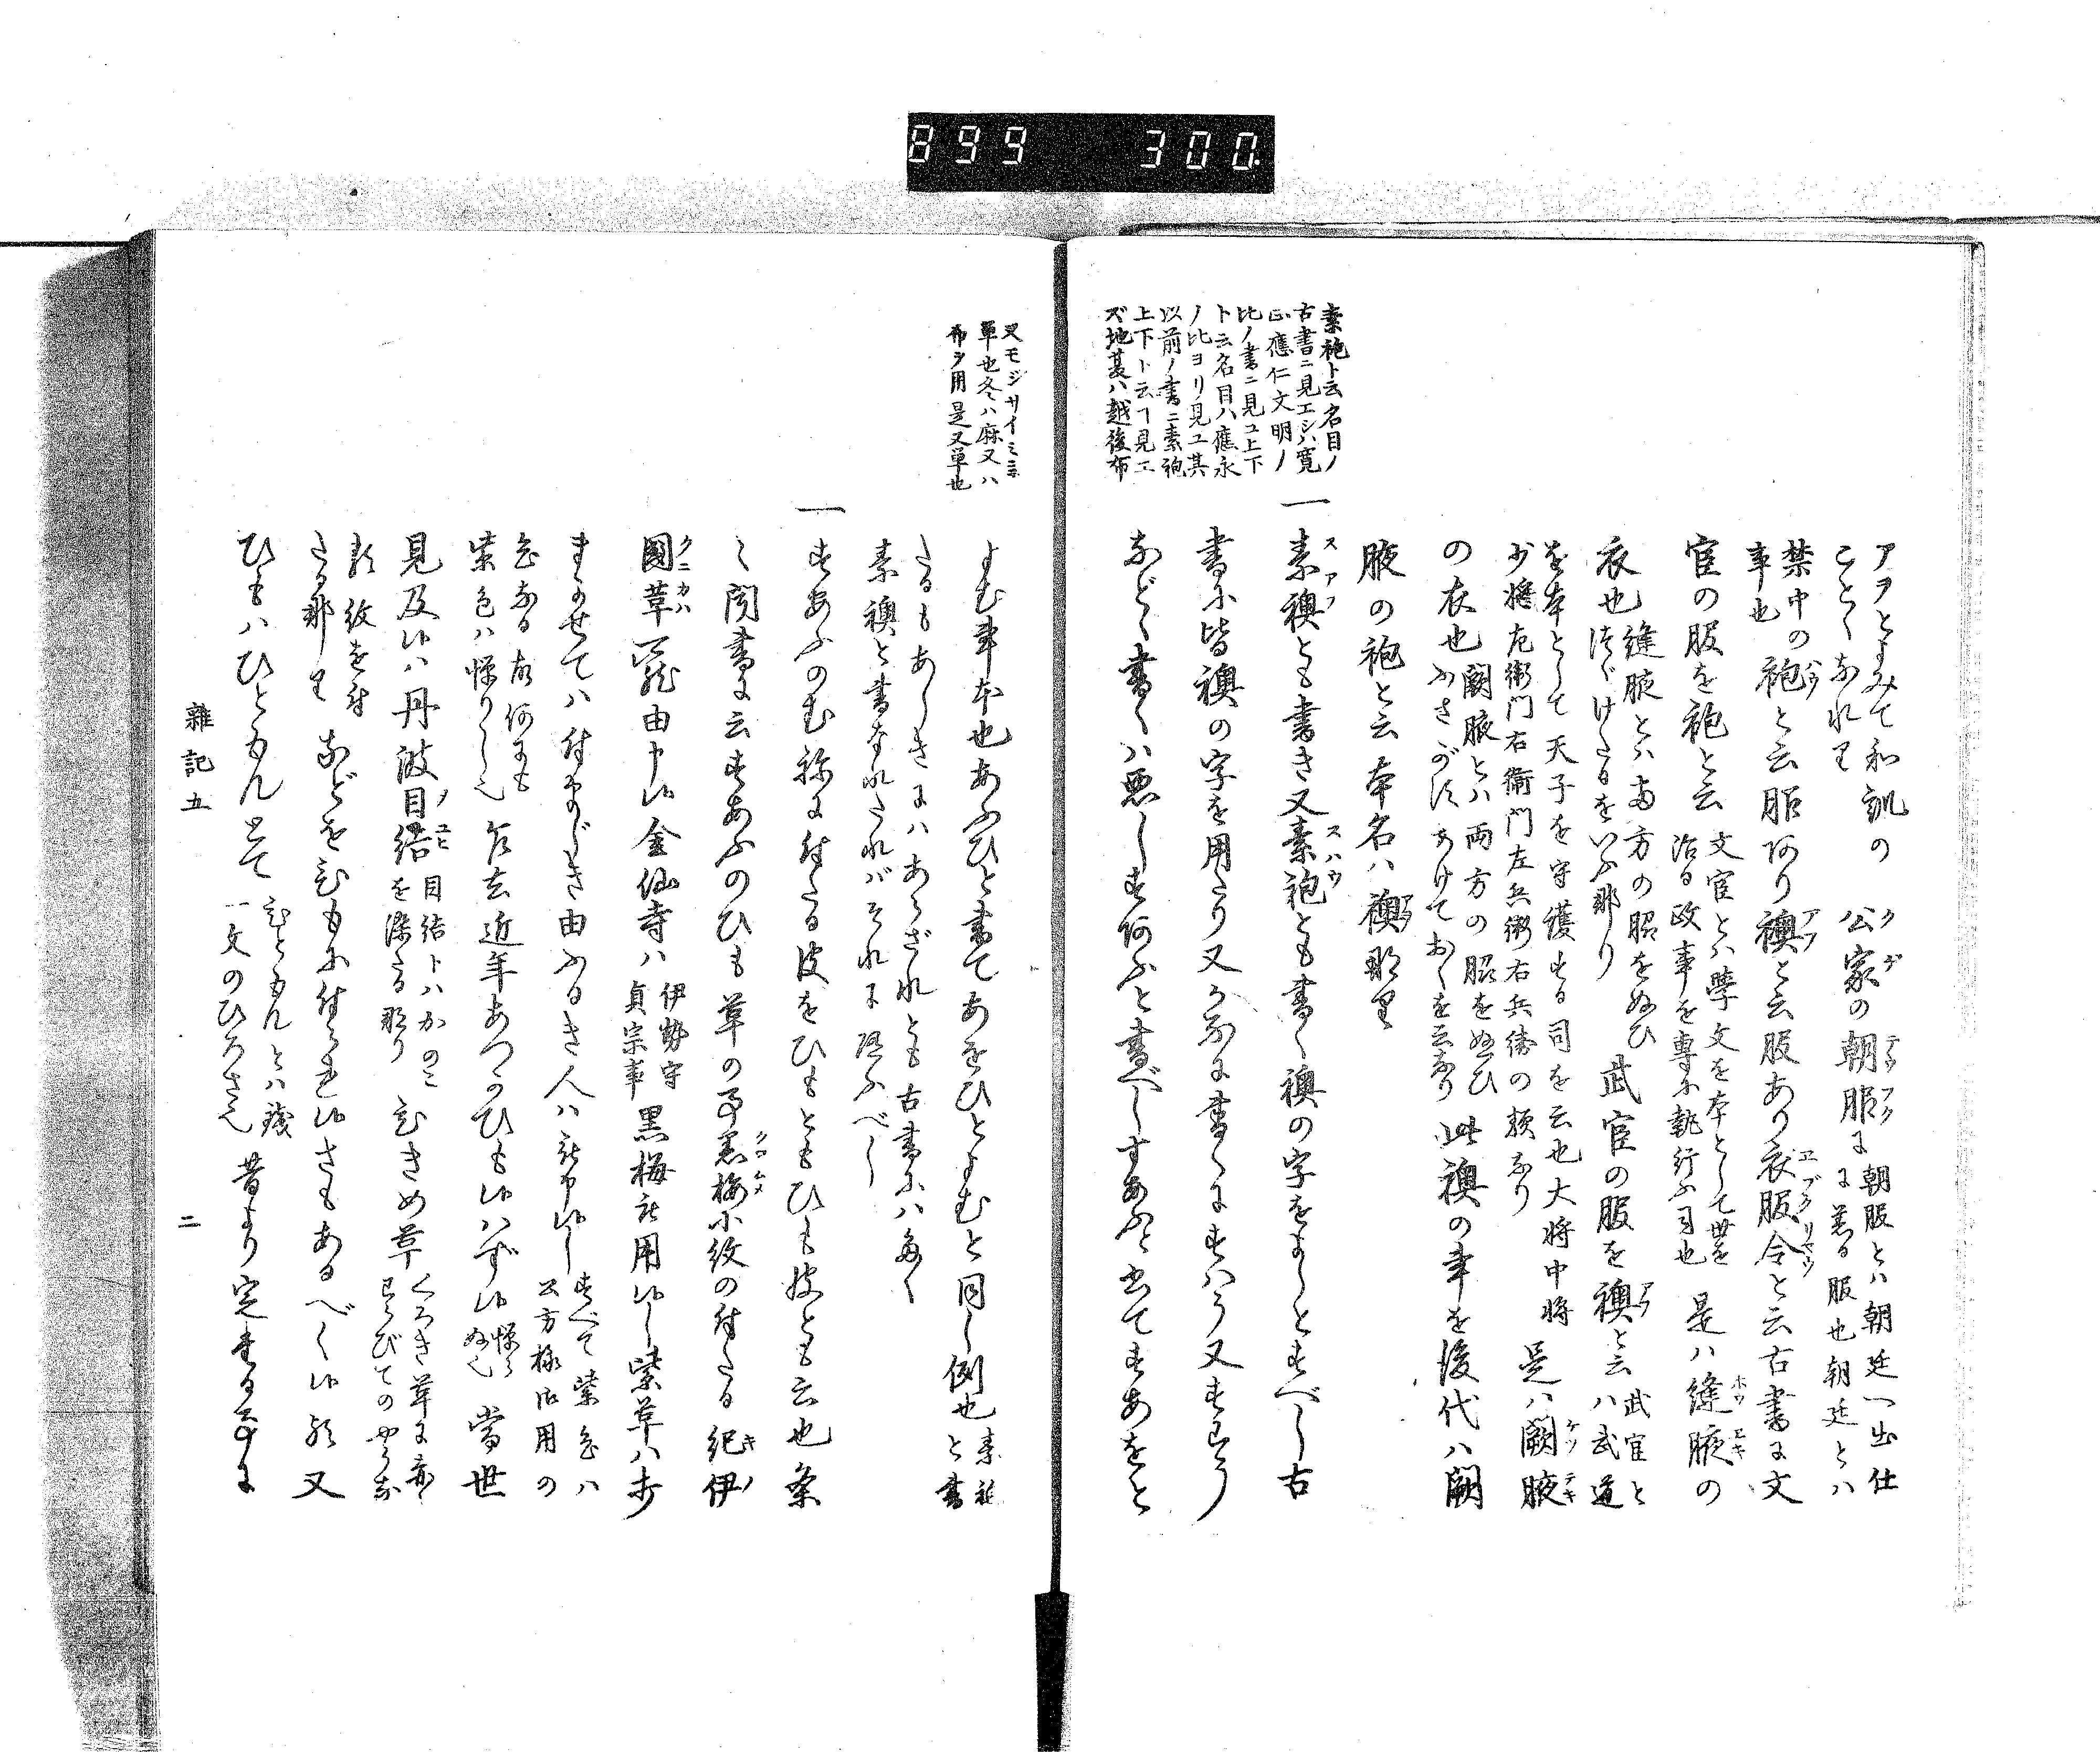 899 300
素袍ト云名目ノ
古書ニ見エシハ寛
正應仁文明ノ
比ノ書ニ見ユ上下
ト云名目ハ應永
ノ比ヨリ見ユ其
以前ノ書ニ素袍
上下ト云ヿ見エ
ズ地夏ハ越後布
アヲとよみて和訓の
ことくなれり
公家の朝服に
クゲ テウフク
朝服とハ朝廷へ出仕
に着る服也朝廷とハ
禁中の
事也
袍と云服あり襖と云服あり衣服令と云古書に文
ハウ アフ エブクリヤウ
官の服を袍と云
文官とハ學文を本として世を
治る政事を専に執行ふ司也
是ハ縫腋の
ホウエキ
衣也
縫腋とハ両方の脇をぬひ
つゞけたるをいふ那り
武官の服を襖と云
アフ
武官と
ハ武道
を本として天子を守護する司を云也大将中将
少将左衛門右衛門左兵衛右兵衛の類なり
是ハ闕腋
ケツテキ
の衣也
闕腋とハ両方の脇をぬひ
ふさがずあけておくを云なり
此襖の事を後代ハ闕
腋の袍と云本名ハ襖那里
アフ
一 素襖とも書き又素袍とも書く襖の字をよしとすべし古
スアフ スハウ
書に皆襖の字を用たり又かなに書くにすハう又すわう
などゝ書くハ悪しす阿ふと書べしすあふと書てすあをと
又モジサイミ
單也冬ハ麻又ハ
布ヲ用是又單也
よむ事本也あふひと書てあをひとよむと同し例也
と書
たるもあしきにハあらざれとも古書にハ多く
素襖と書なれたれバそれに随ふべし
一 すあふのむねに付たる皮をひもともひも皮とも云也条
々聞書に云すあふのひも革の事黒梅小紋の付たる紀伊
クロムメ キノ
國革
クニカハ
由申候金仙寺ハ
伊勢守
貞宗事
黒梅を用候し紫革ハ歩
まかせてハ付ましき由ふるき人ハ被申候し
すべて紫色ハ
公方様御用の
色なる故何にも
紫色ハ憚りし也
乍去近年あつかひも候ハず候
憚ら
ぬ也
當世
見及候ハ丹波目結
ノ ユヒ
目結トハかのこ
を染たる那り
むさめ革
くろき革に赤く
わらびてのやうな
る紋を付
たる那り
などをむもに付られ候さもあるべく候哉又
ひもハひともんとて
むともんとハ錢
一文のひろさ也
昔より定まる事に
雜記五
二